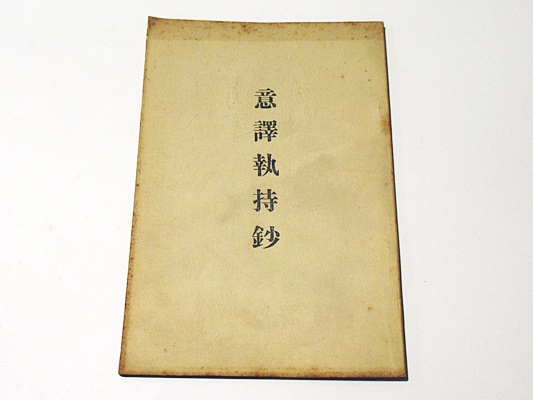 意譯執持鈔